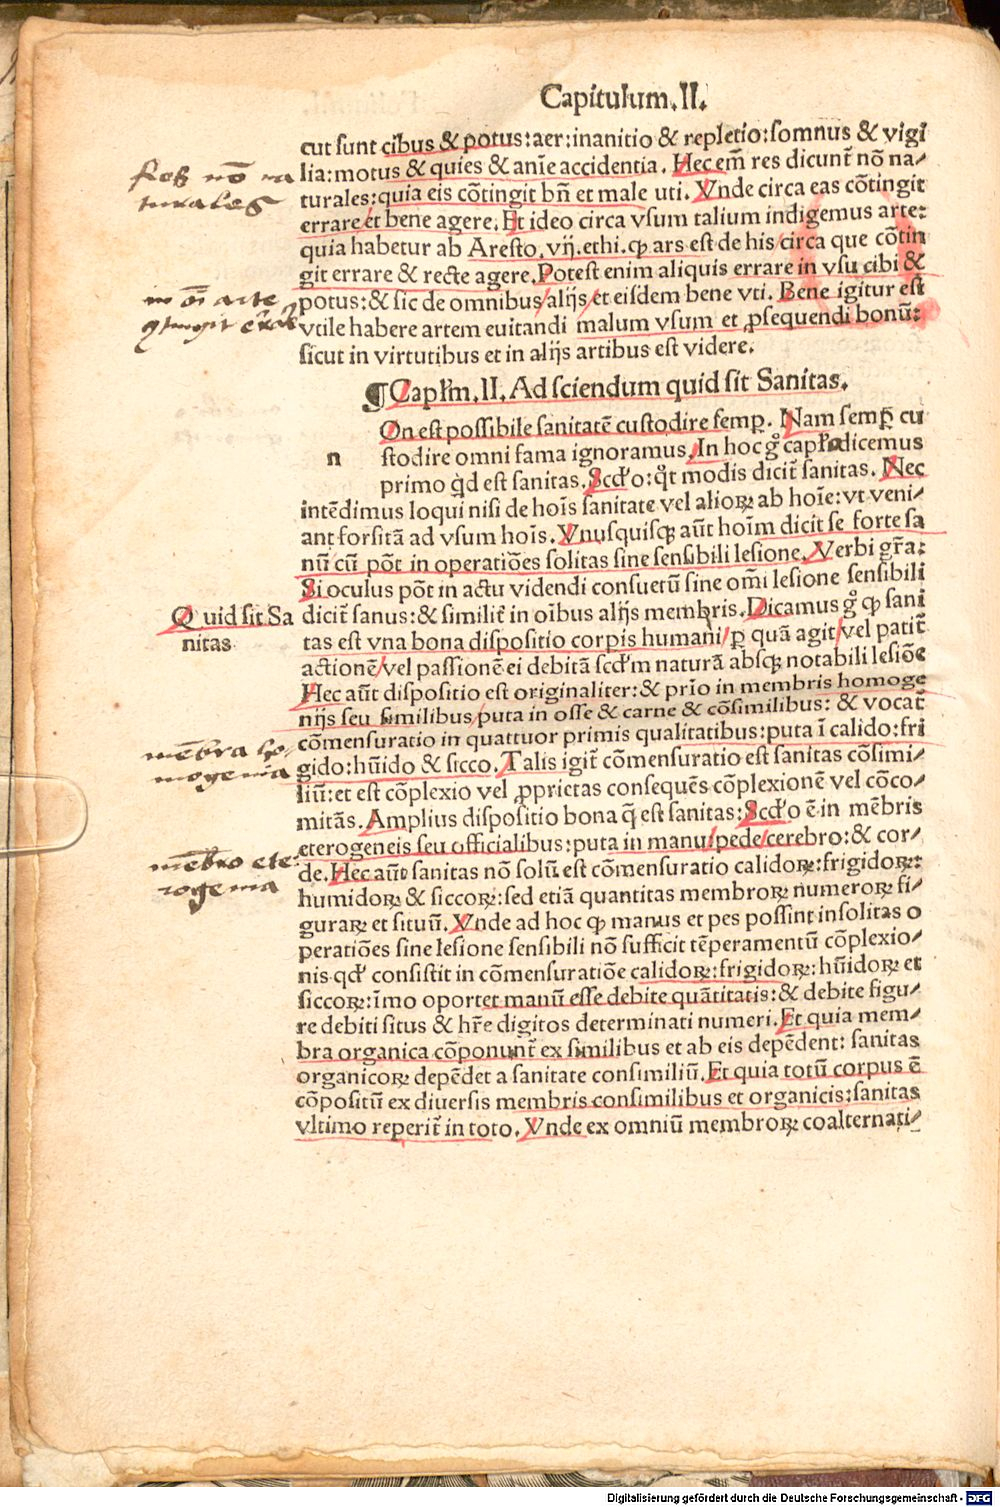 Capitulum.II.
cut sunt cibus & potus:aer:inanitio & repletio:somnus & vigi
lia:motus & quies & anīe accidentia. Hec em̄ res dicunt̄ nō na⸗
turales:quia eis cōtingit bn̄ et male uti. Vnde circa eas cōtingit
errare/et bene agere. Et ideo circa vsum talium indigemus arte:
quia habetur ab Aresto. vij. ethi. ꝙ ars est de his/circa que cōtin
git errare & recte agere. Potest enim aliquis errare in vsu cibi &
potus:& sic de omnibus/alijs/et eisdem bene vti. Bene igitur est
vtile habere artem euitandi malum vsum et ꝓsequendi bonū:
sicut in virtutibus et in alijs artibus est videre.
res nō na
turales
in oī arte
¶ Capłm. II. Ad sciendum quid sit Sanitas.
n
On est possibile sanitatē custodire semꝑ. Nam semꝑ cu
stodire omni fama ignoramus. In hoc gͦ capło dicemus
primo qd est sanitas. Scd̄o:qͦt modis dicit̄ sanitas. Nec
intēdimus loqui nisi de hoīs sanitate vel alioꝝ ab hoīe:vt veni⸗
ant forsitā ad vsum hoīs. Vnusquisqꝫ aūt hoīm dicit se forte sa
nū/cū pōt in operatiōes solitas sine sensibili lesione. Verbi gr̄a:
Si oculus pōt in actu videndi consuetū sine om̄i lesione sensibili
dicit̄ sanus:& similit̄ in oībus alijs membris. Dicamus gͦ ꝙ sani
tas est vna bona dispositio corpis humani/ꝑ quā agit/vel patit̄
actionē/vel passionē ei debitā scd̄m naturā absqꝫ notabili lesiōe
Quid sit Sa
nitas
Hec aūt dispositio est originaliter:& prīo in membris homoge
nijs seu similibus/puta in osse & carne & cōsimilibus: & vocat̄
cōmensuratio in quattuor primis qualitatibus:puta ī calido:fri
gido:hūido & sicco. Talis igit̄ cōmensuratio est sanitas cōsimi⸗
liū:et est cōplexio vel ꝓprietas consequēs cōplexionē vel cōco⸗
mitās. Amplius dispositio bona q̄ est sanitas:Scd̄o ē in mēbris
eterogeneis seu officialibus:puta in manu/pede/cerebro:& cor⸗
de. Hec aūt sanitas nō solū est cōmensuratio calidoꝝ:frigidoꝝ:
mēbra ho⸗
mogenia
mēbro ete⸗
rogenia
humidoꝝ & siccoꝝ:sed etiā quantitas membroꝝ numeroꝝ fi⸗
guraꝝ et situū. Vnde ad hoc ꝙ manus et pes possint insolitas o
peratiōes sine lesione sensibili nō sufficit tēperamentū cōplexio⸗
nis qd̄ consistit in cōmensuratiōe calidoꝝ:frigidoꝝ:hūidoꝝ et
siccoꝝ:īmo oportet manū esse debite quātitatis:& debite figu⸗
re debiti situs & hr̄e digitos determinati numeri. Et quia mem⸗
bra organica cōponunt̄ ex similibus et ab eis depēdent: sanitas
organicoꝝ depēdet a sanitate consimiliū. Et quia totū corpus ē
cōpositū ex diuersis membris consimilibus et organicis:sanitas
vltimo reperit̄ in toto. Vnde ex omniū membroꝝ coalternati⸗
Digitalisierung gefördert durch die Deutsche Forschungsgemeinschaft - DFG